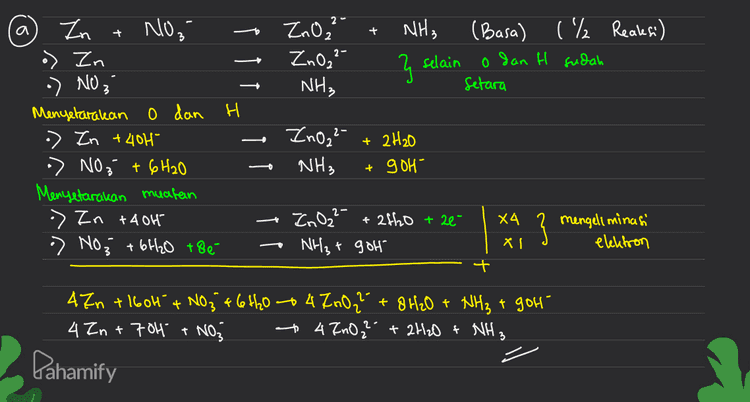 (a) Zn + NO₃⁻ → ZnO₂²⁻ + NH₃ (Basa) (1/2 Reaksi)
•) Zn → ZnO₂²⁻ } selain O dan H sudah
•) NO₃⁻ → NH₃ setara
Menyetarakan O dan H
•) Zn + 4OH⁻ → ZnO₂²⁻ + 2H₂O
•) NO₃⁻ + 6H₂O → NH₃ + 9OH⁻
Menyetarakan muatan
•) Zn + 4OH⁻ → ZnO₂²⁻ + 2H₂O + 2e⁻ | x4 } mengeliminasi
•) NO₃⁻ + 6H₂O + 8e⁻ → NH₃ + 9OH⁻ | x1 elektron
+
4Zn + 16OH⁻ + NO₃⁻ + 6H₂O → 4ZnO₂²⁻ + 8H₂O + NH₃ + 9OH⁻
4Zn + 7OH⁻ + NO₃⁻ → 4ZnO₂²⁻ + 2H₂O + NH₃
Pahamify